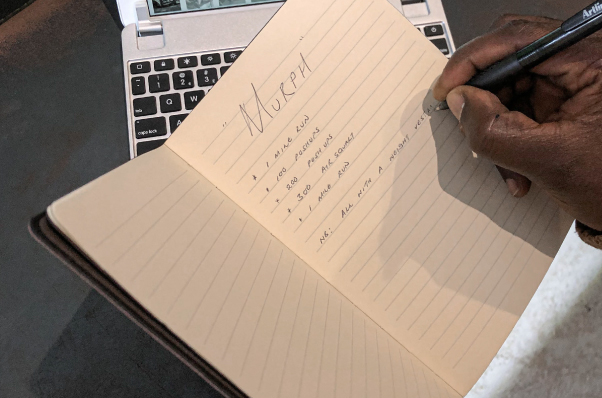 "MURPH"
* 1 MILE RUN
* 100 POSHUPS
* 200 PUSH UPS
* 300 AIR SQUATS
* 1 MILE RUN
NB: ALL WITH A WEIGHT VES
Artline
caps lock
Q
W
A